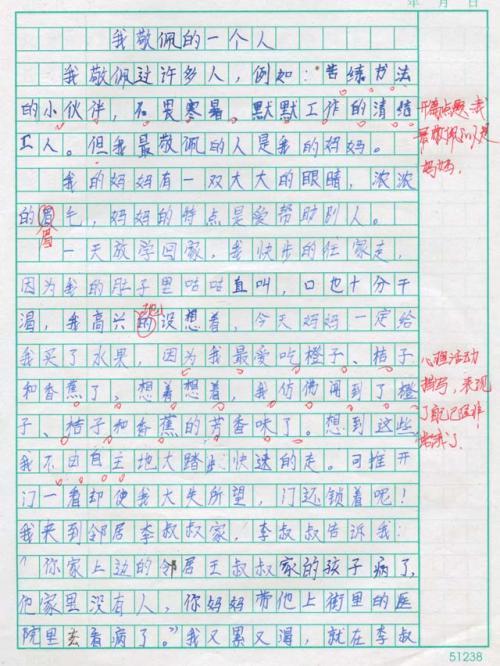 年 月 日
我敬佩的一个人
我敬佩过许多人，例如：苦练书法
的小伙伴，不畏寒暑、默默工作的清结
工人。但我最敬佩的人是我的妈妈。
我的妈妈有一双大大的眼睛，浓浓
的眉毛，妈妈的特点是爱帮助别人。
眉
一天放学回家，我快步的往家走，
因为我的肚子里咕咕直叫，口也十分干
渴，我高兴的没想着，今天妈妈一定给
地
我买了水果，因为我最爱吃橙子、桔子
和香蕉了，想着想着，我仿佛闻到了橙
子、桔子和香蕉的芳香味了。想到这些
我不由自主地大踏步快速的走。可推开
门一看却使我大失所望，门还锁着呢！
我来到邻居李叔叔家，李叔叔告诉我：
“你家上边的邻居王叔叔家的孩子病了，
他家里没有人，你妈妈带他上街里的医
院里去看病了。”我又累又渴，就在李叔
开篇点题，我
最敬佩的人是
妈妈.
心理活动
描写，表现
了自己
51238